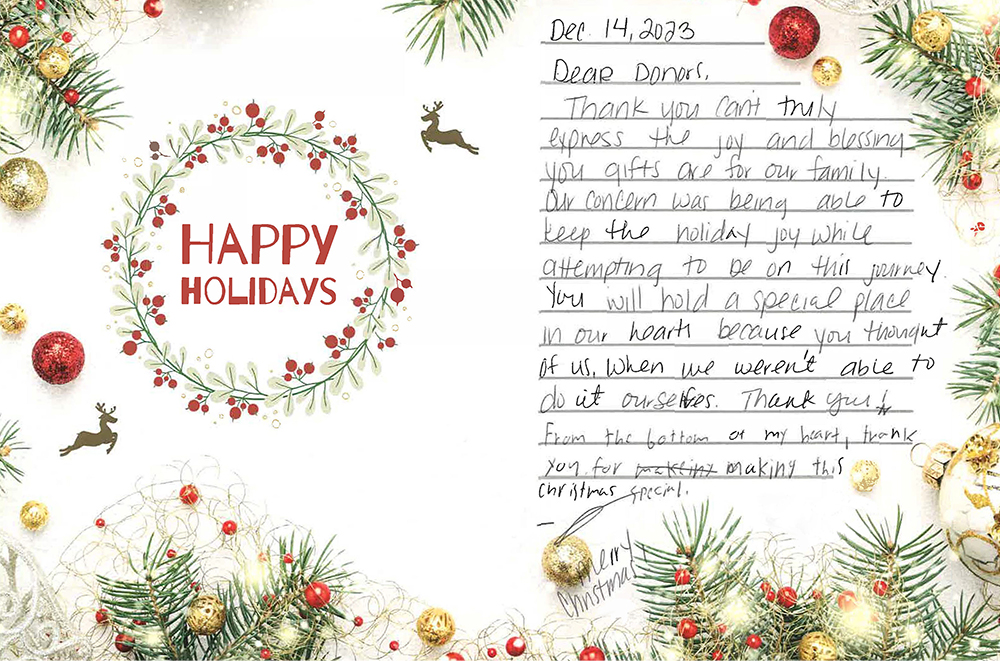 HAPPY
HOLIDAYS
Dec. 14, 2023
Dear Donors,
Thank you can't truly
express the joy and blessing
you gifts are for our family.
Our concern was being able to
keep the holiday joy while
attempting to be on this journey.
You will hold a special place
in our hearts because you thought
of us, when we weren't able to
do it ourselves. Thank you!
From the bottom of my heart, thank
you for making this
Christmas special.
Merry
Christmas